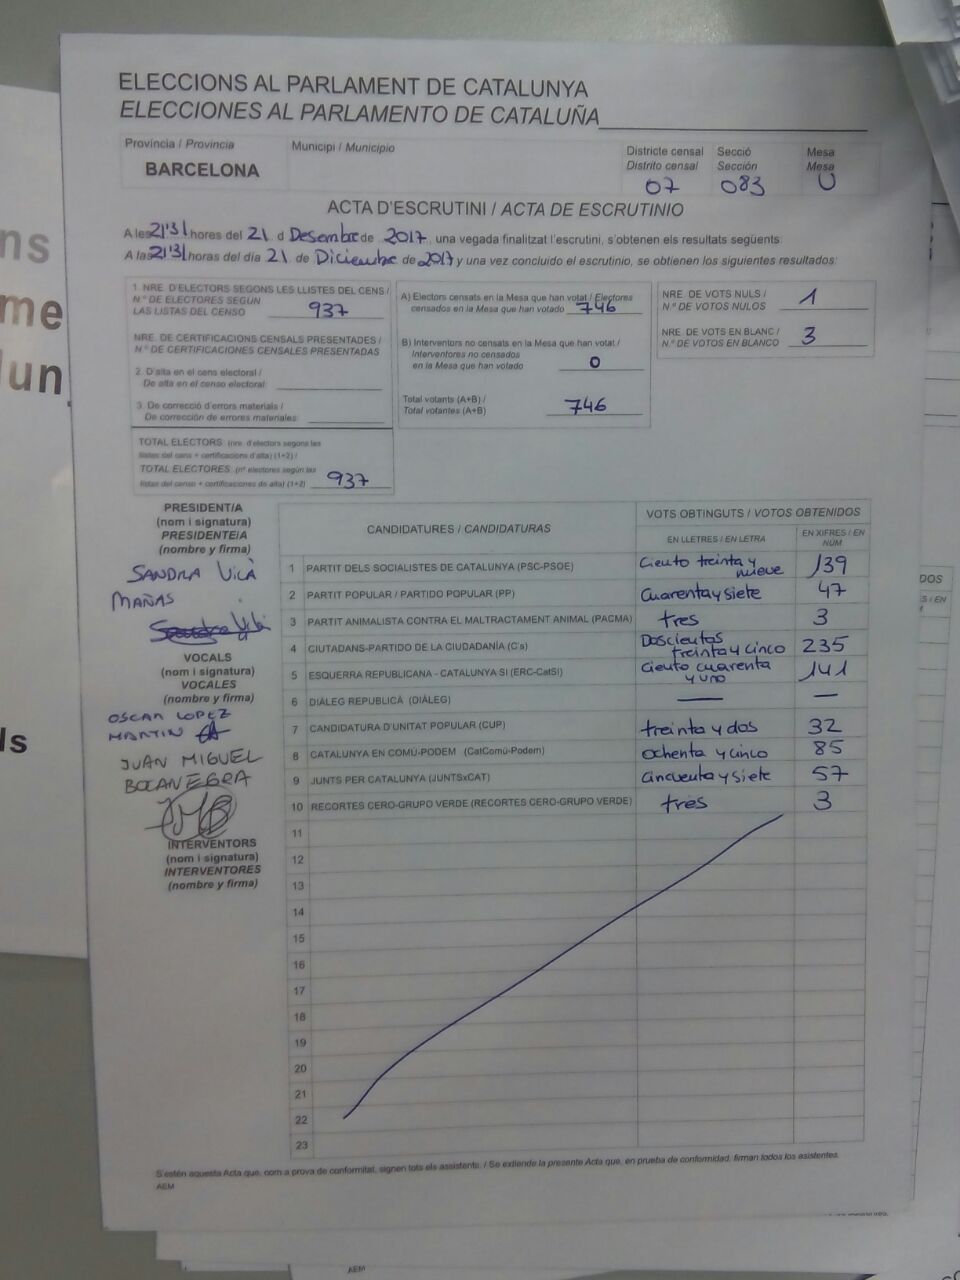 ELECCIONS AL PARLAMENT DE CATALUNYA
ELECCIONES AL PARLAMENTO DE CATALUÑA
Província / Provincia
BARCELONA
Municipi / Municipio
Districte censal
Distrito censal
07
Secció
Sección
083
Mesa
Mesa
U
ACTA D'ESCRUTINI / ACTA DE ESCRUTINIO
A les 21'31 hores del 21 d Desembre de 2017, una vegada finalitzat l'escrutini, s'obtenen els resultats següents:
A las 21'31 horas del día 21 de Diciembre de 2017 y una vez concluido el escrutinio, se obtienen los siguientes resultados:
1. NRE. D'ELECTORS SEGONS LES LLISTES DEL CENS /
N.º DE ELECTORES SEGÚN
LAS LISTAS DEL CENSO 937
NRE. DE CERTIFICACIONS CENSALS PRESENTADES /
N.º DE CERTIFICACIONES CENSALES PRESENTADAS
2. D'alta en el cens electoral /
De alta en el censo electoral:
3. De correcció d'errors materials /
De corrección de errores materiales:
TOTAL ELECTORS: (nre. d'electors segons les
llistes del cens + certificacions d'alta) (1+2) /
TOTAL ELECTORES: (nº electores según las
listas del censo + certificaciones de alta) (1+2) 937
A) Electors censats en la Mesa que han votat / Electores
censados en la Mesa que han votado 746
B) Interventors no censats en la Mesa que han votat /
Interventores no censados
en la Mesa que han votado 0
Total votants (A+B) /
Total votantes (A+B) 746
NRE. DE VOTS NULS /
N.º DE VOTOS NULOS 1
NRE. DE VOTS EN BLANC /
N.º DE VOTOS EN BLANCO 3
PRESIDENT/A
(nom i signatura)
PRESIDENTE/A
(nombre y firma)
SANDRA VILÀ
MAÑAS
VOCALS
(nom i signatura)
VOCALES
(nombre y firma)
OSCAR LOPEZ
MARTIN
JUAN MIGUEL
BOCANEGRA
INTERVENTORS
(nom i signatura)
INTERVENTORES
(nombre y firma)
CANDIDATURES / CANDIDATURAS
VOTS OBTINGUTS / VOTOS OBTENIDOS
EN LLETRES / EN LETRA
EN XIFRES / EN NÚM
1 PARTIT DELS SOCIALISTES DE CATALUNYA (PSC-PSOE) Ciento treinta y nueve 139
2 PARTIT POPULAR / PARTIDO POPULAR (PP) Cuarenta y siete 47
3 PARTIT ANIMALISTA CONTRA EL MALTRACTAMENT ANIMAL (PACMA) tres 3
4 CIUTADANS-PARTIDO DE LA CIUDADANÍA (C's) Doscientos treinta y cinco 235
5 ESQUERRA REPUBLICANA - CATALUNYA SÍ (ERC-CatSí) Ciento cuarenta y uno 141
6 DIÀLEG REPUBLICÀ (DIÀLEG) — —
7 CANDIDATURA D'UNITAT POPULAR (CUP) treinta y dos 32
8 CATALUNYA EN COMÚ-PODEM (CatComú-Podem) ochenta y cinco 85
9 JUNTS PER CATALUNYA (JUNTSxCAT) Cincuenta y siete 57
10 RECORTES CERO-GRUPO VERDE (RECORTES CERO-GRUPO VERDE) tres 3
11
12
13
14
15
16
17
18
19
20
21
22
23
S'estén aquesta Acta que, com a prova de conformitat, signen tots els assistents. / Se extiende la presente Acta que, en prueba de conformidad, firman todos los asistentes.
AEM
AEM